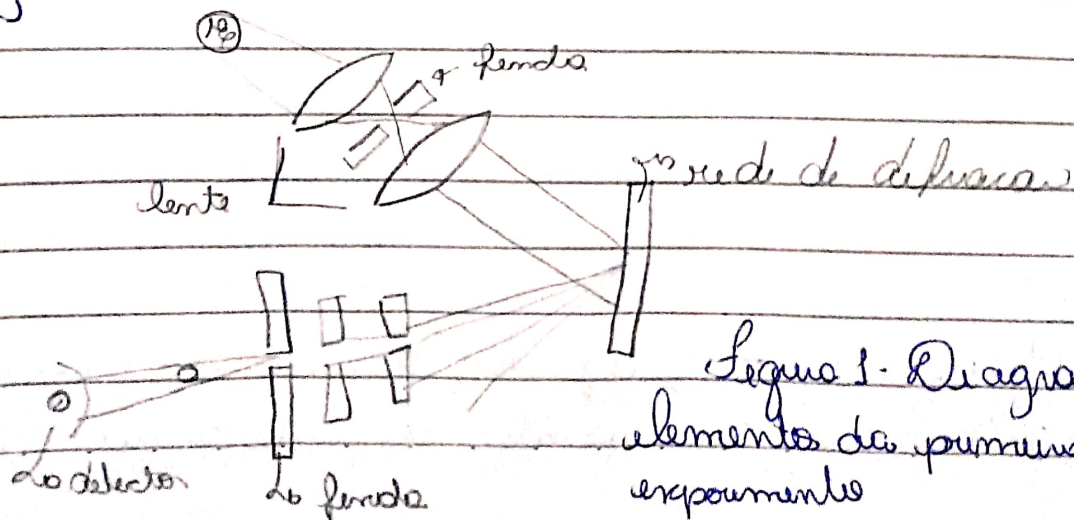 Hg
fenda
rede de difracao
lente
Figura 1. Diagra
elemento da primeira
experimento
detector
fenda